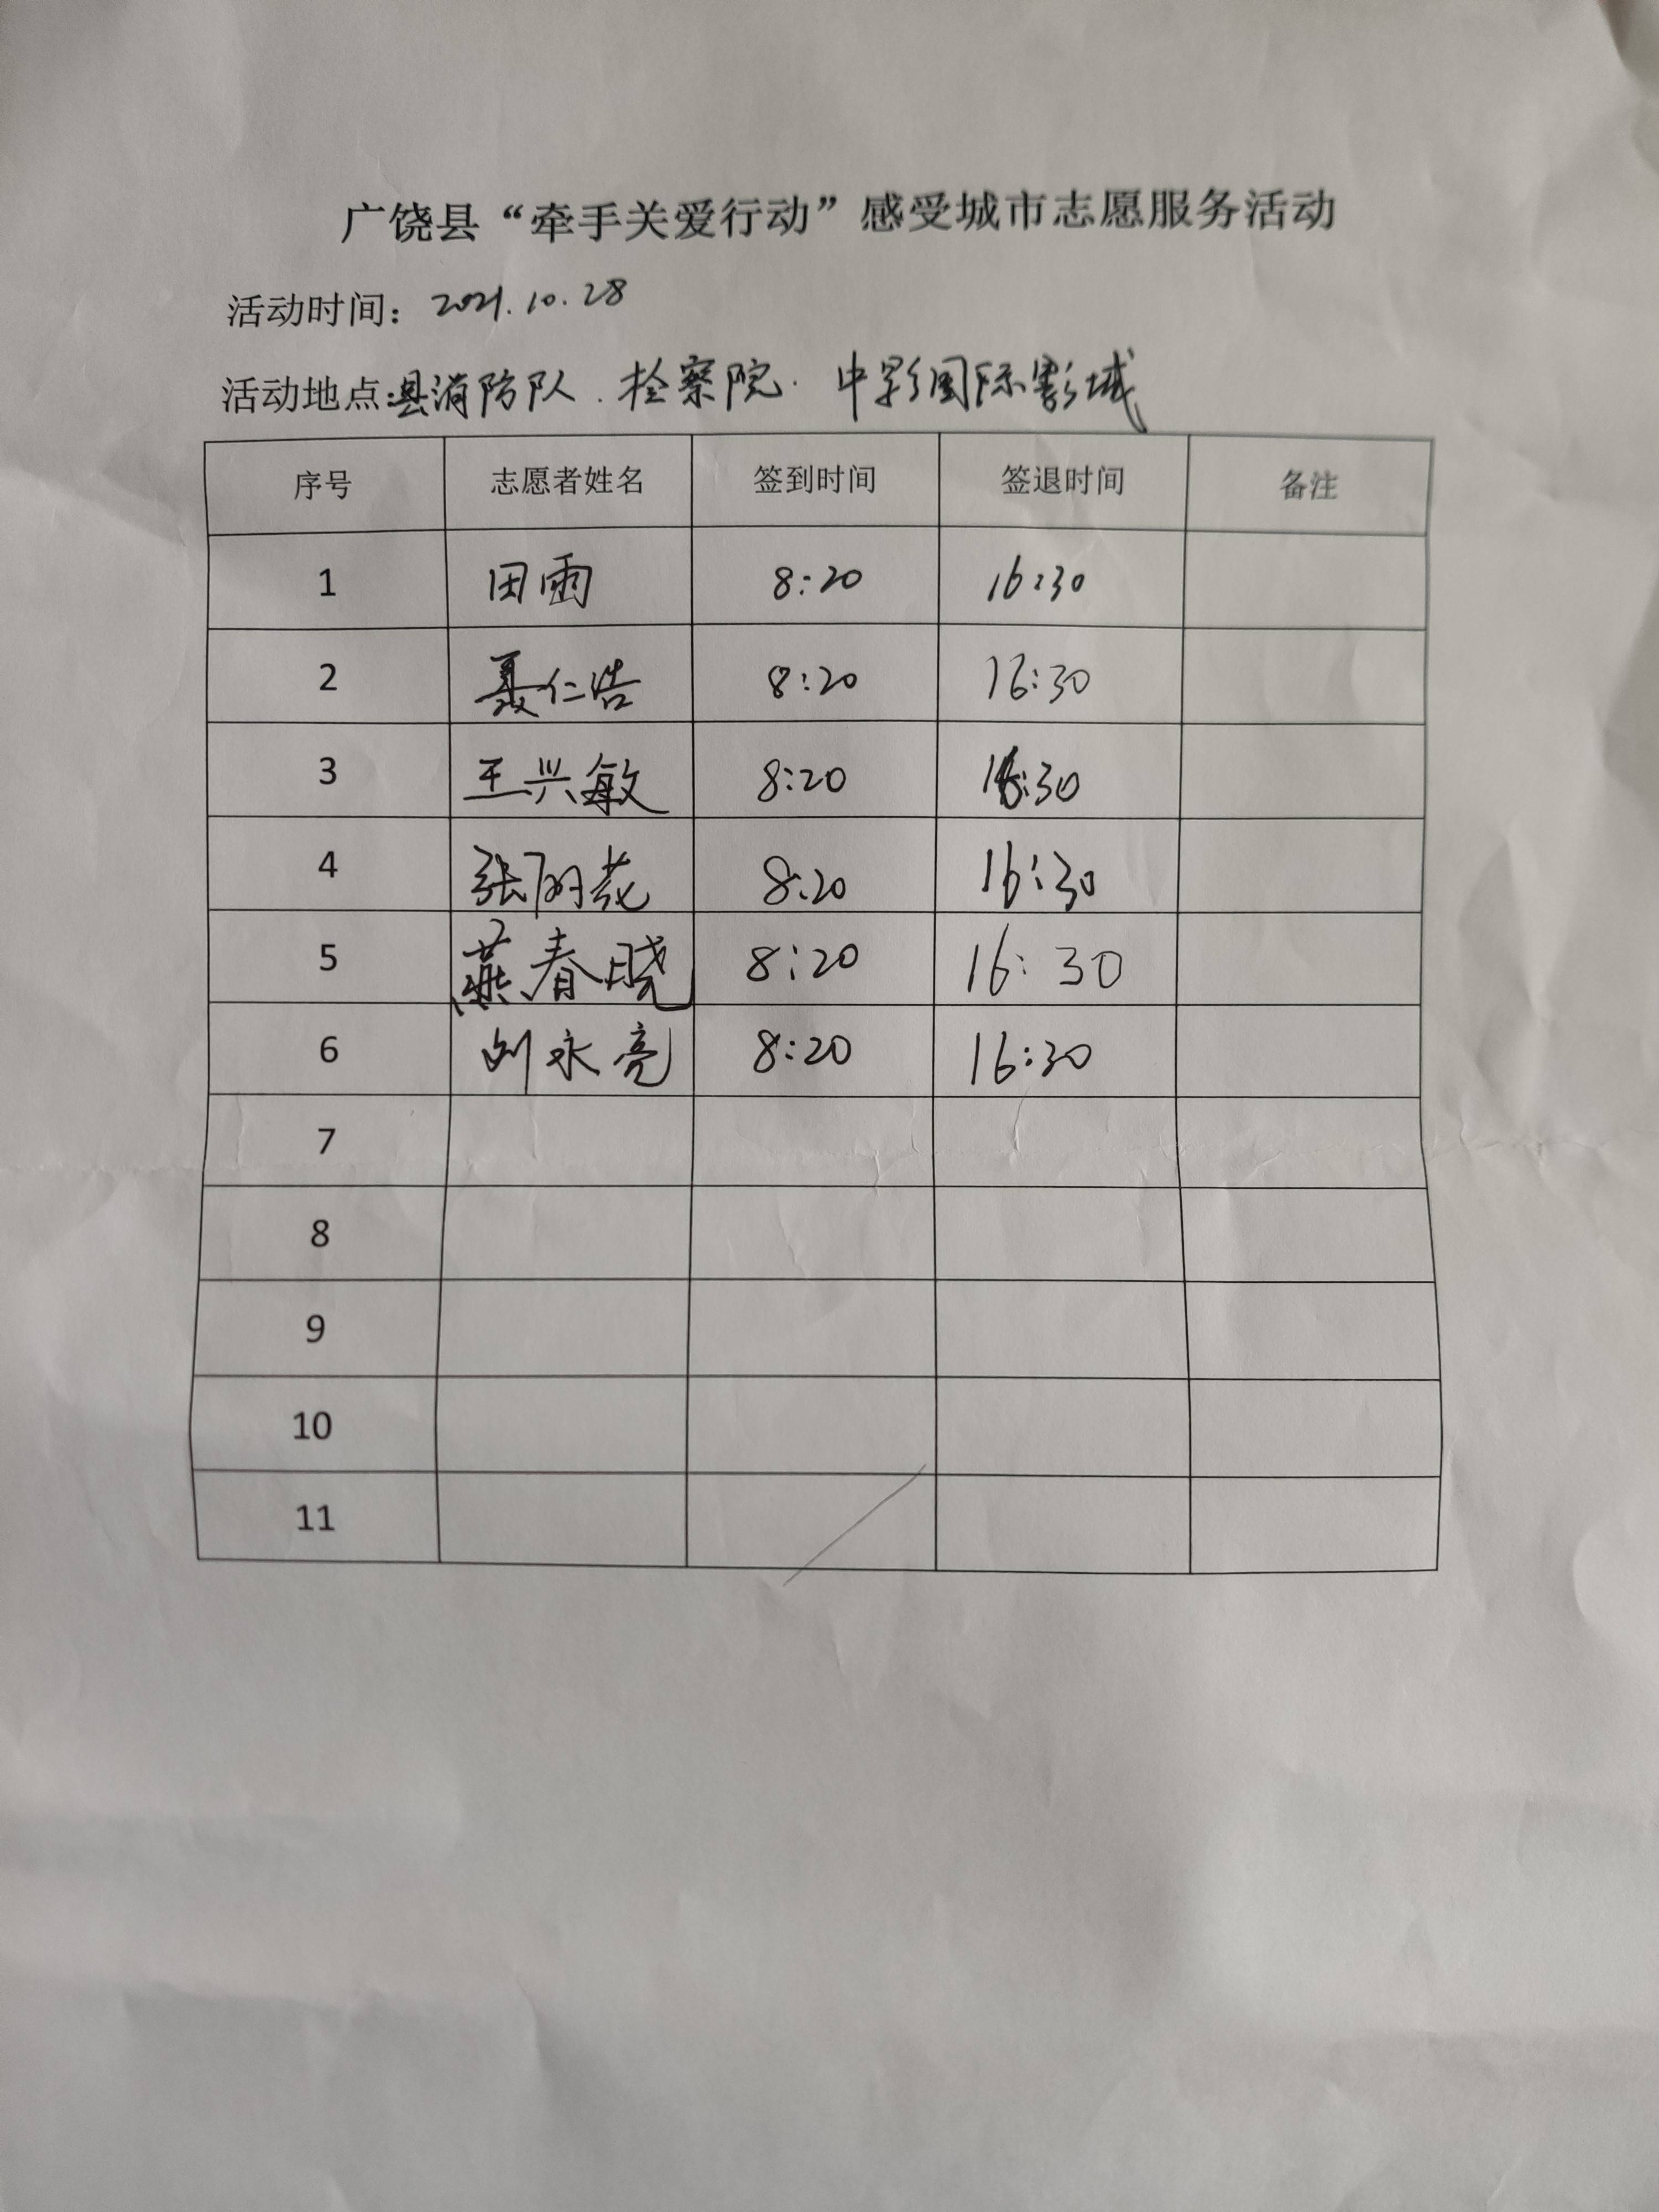 广饶县“牵手关爱行动”感受城市志愿服务活动
活动时间：2021.10.28
活动地点：县消防队.检察院.中影国际影城
序号 志愿者姓名 签到时间 签退时间 备注
1 田雨 8:20 16:30
2 聂仁浩 8:20 16:30
3 王兴敏 8:20 16:30
4 张丽花 8:20 16:30
5 燕春晓 8:20 16:30
6 刘永亮 8:20 16:30
7
8
9
10
11